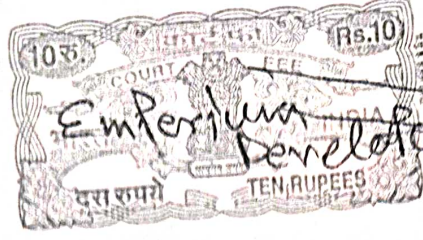 10रु. Rs.10
COURT FEE
INDIA
Emperium
दस रुपये TEN RUPEES